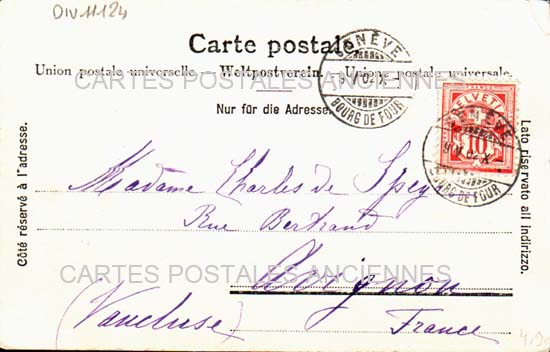 DIV 11124
Carte postale.
Union postale universelle. — Weltpostverein. — Unione postale universale.
CARTES POSTALES ANCIENNES
GENÈVE
BOURG DE FOUR
HELVETIA
10
GENÈVE
BOURG DE FOUR
Nur für die Adresse.
Côté réservé à l'adresse.
Lato riservato all indirizzo.
Madame Charles de Spey
Rue Bertrand
CARTES POSTALES ANCIENNES
Avignon
(Vaucluse)
France